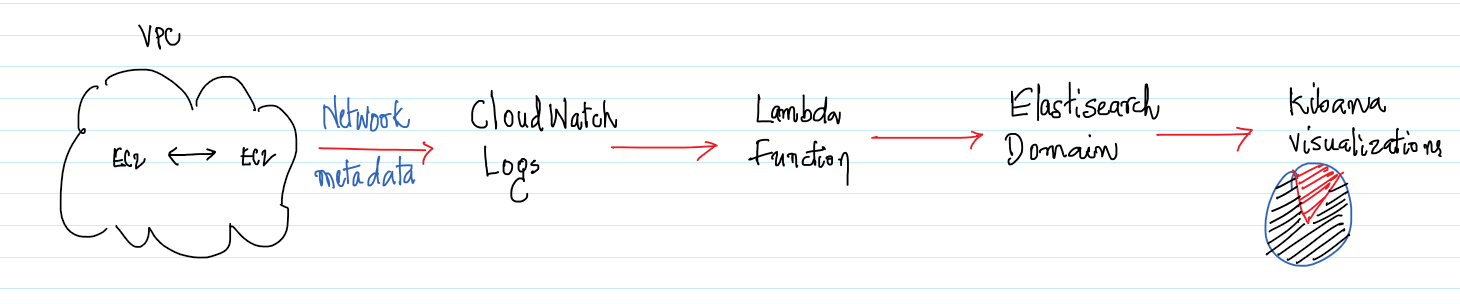 VPC
EC2 ↔ EC2
Network
metadata
CloudWatch
Logs
Lambda
Function
Elastisearch
Domain
Kibana
Visualizations